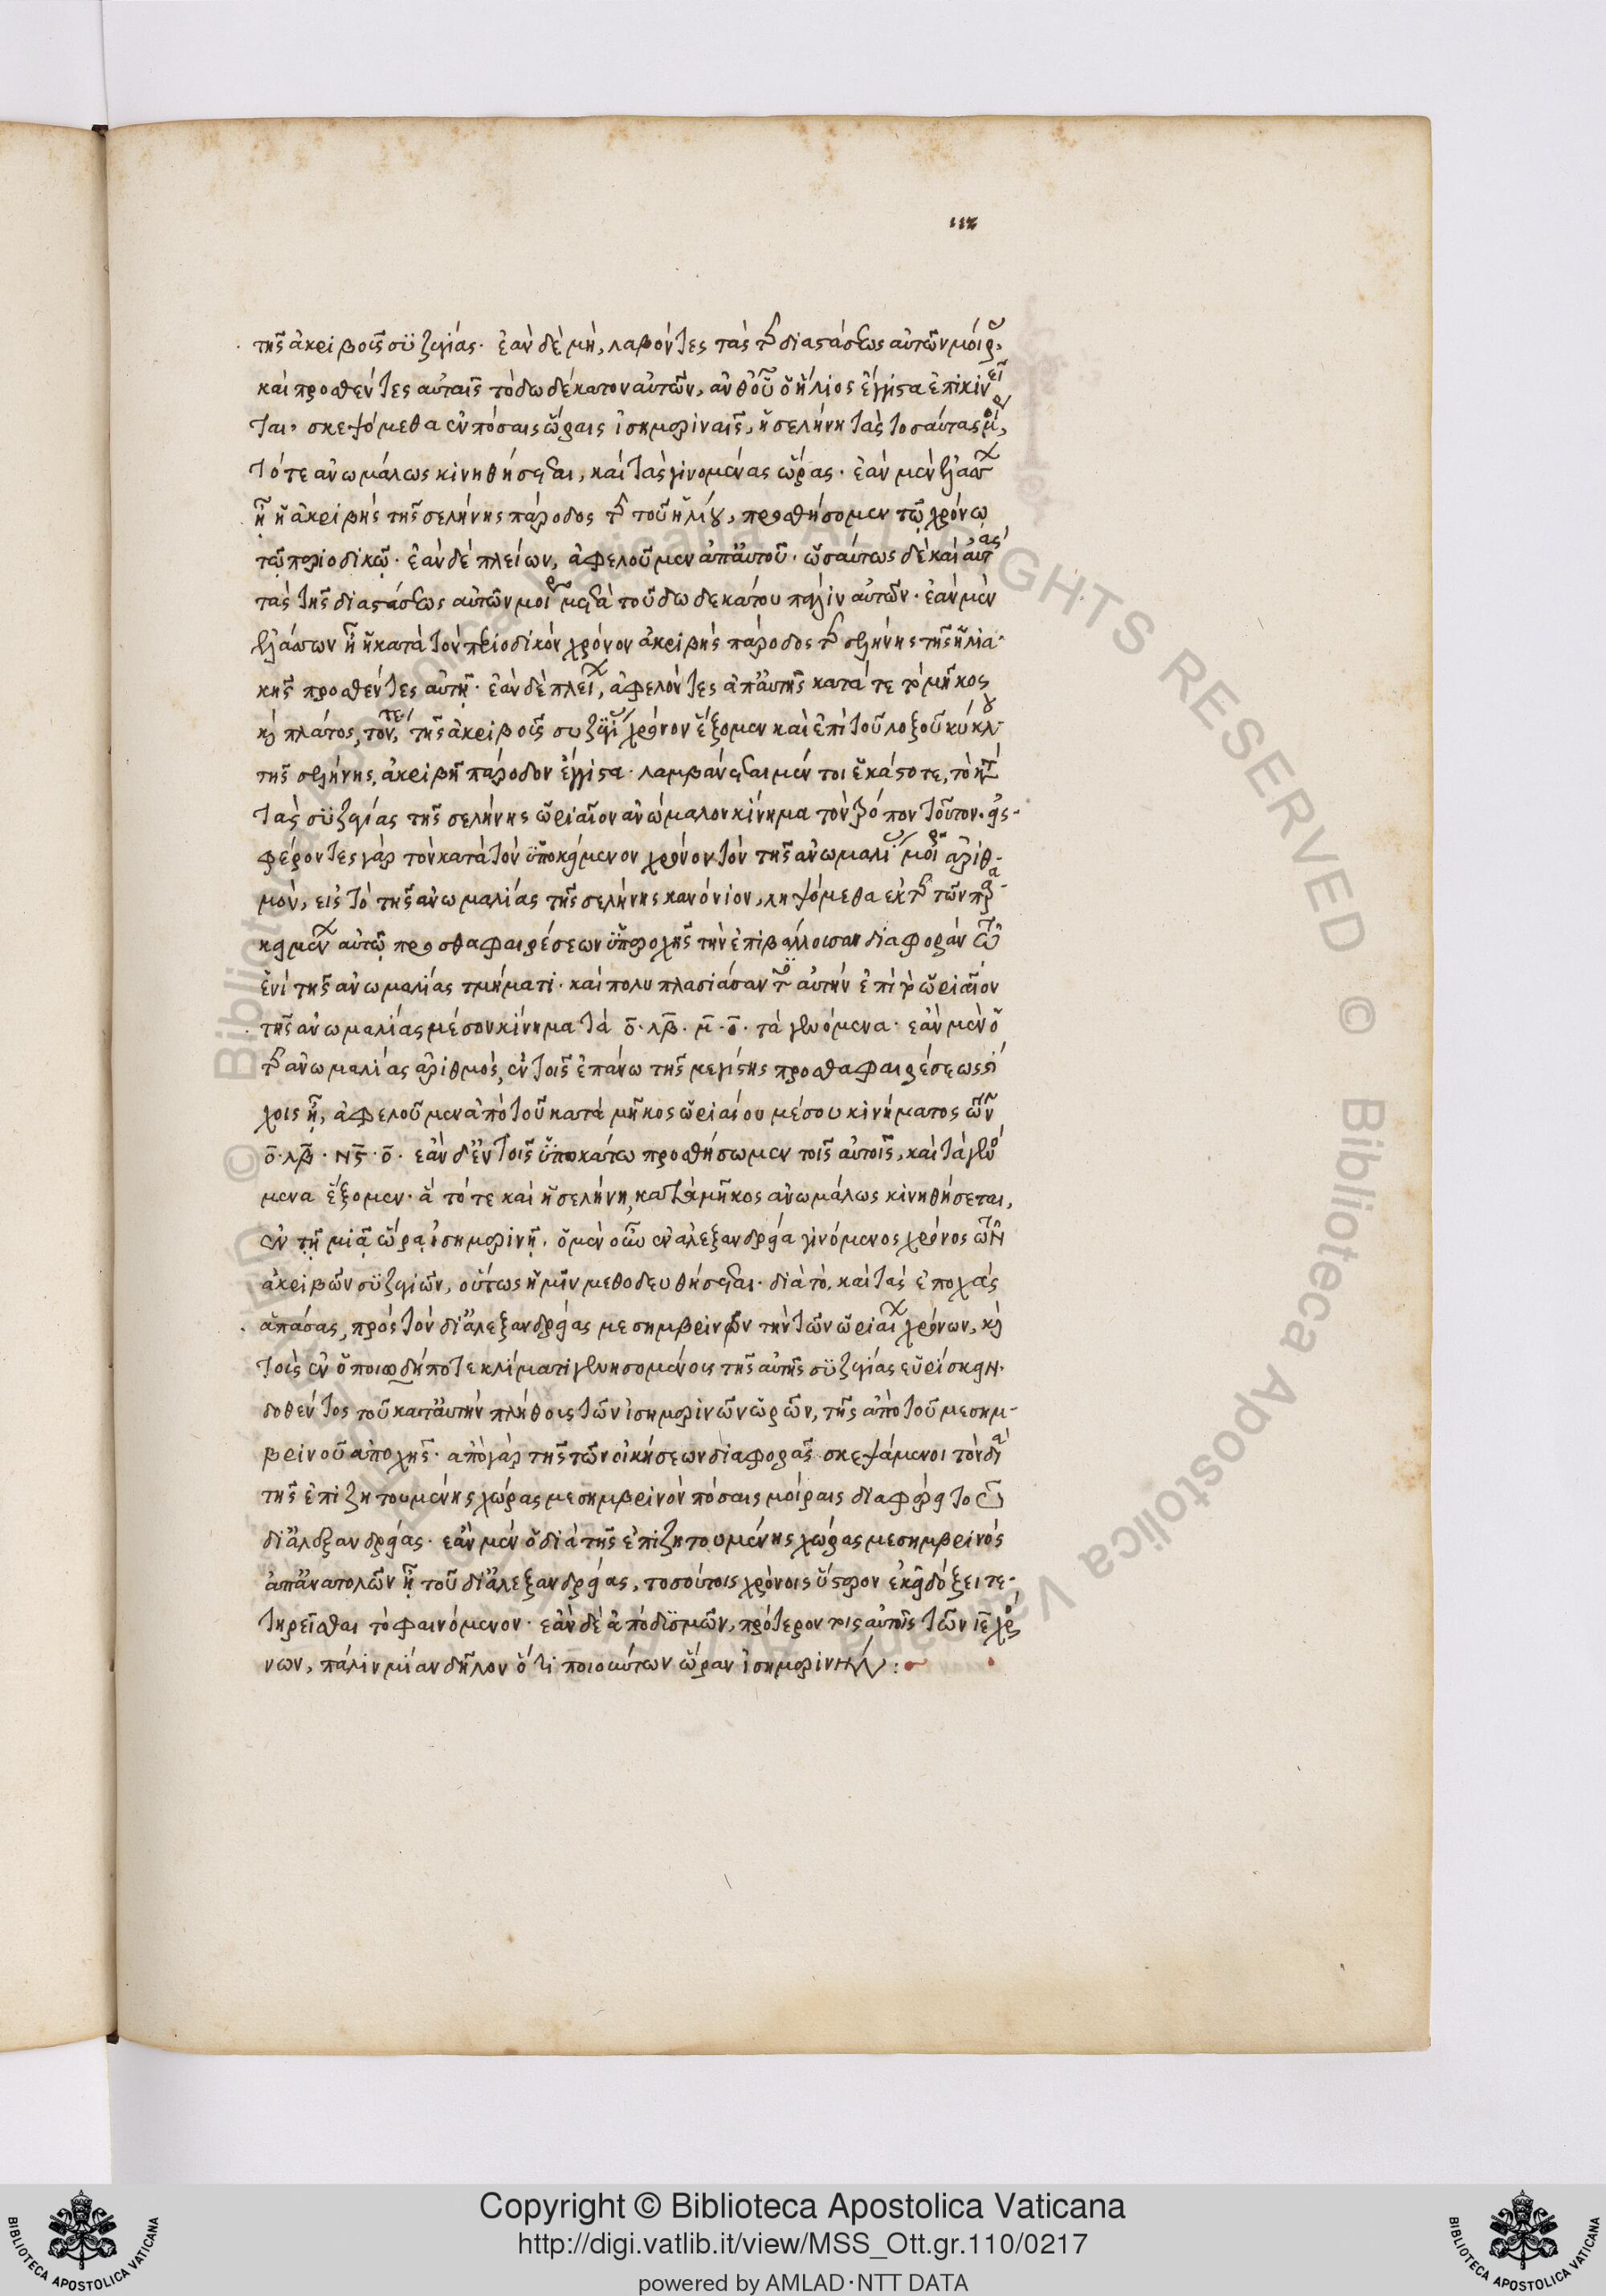 117
τῆς ἀκριβοῦς συζυγίας. ἐὰν δὲ μὴ, λαβόντες τὰς τῆς διαστάσεως αὐτῶν μοίρας,
καὶ προσθέντες αὐταῖς τὸ δωδέκατον αὐτῶν, ἀνθ' οὗ ὁ ἥλιος ἔγγιστα ἐπικινεῖ
ται, σκεψόμεθα ἐν πόσαις ὥραις ἰσημεριναῖς, ἡ σελήνη τὰς τοσαύτας μοίρας,
τότε ἀνωμάλως κινηθήσεται, καὶ τὰς γινομένας ὥρας. ἐὰν μὲν ἐλάσσων
ᾖ ἡ ἀκριβὴς τῆς σελήνης πάροδος τῆς τοῦ ἡλίου, προσθήσομεν τῷ χρόνῳ
τῷ περιοδικῷ. ἐὰν δὲ πλείων, ἀφελοῦμεν ἀπ' αὐτοῦ. ὡσαύτως δὲ καὶ αὐτὰς
τὰς τῆς διαστάσεως αὐτῶν μοίρας μετὰ τοῦ δωδεκάτου πάλιν αὐτῶν. ἐὰν μὲν
ἐλάσσων ᾖ ἡ κατὰ τὸν περιοδικὸν χρόνον ἀκριβὴς πάροδος τῆς σελήνης τῆς ἡλια
κῆς προσθέντες αὐτῇ. ἐὰν δὲ πλείων, ἀφελόντες ἀπ' αὐτῆς κατά τε τὸ μῆκος
καὶ πλάτος, τόν τε τῆς ἀκριβοῦς συζυγίας χρόνον ἕξομεν καὶ ἐπὶ τοῦ λοξοῦ κύκλου
τῆς σελήνης, ἀκριβῆ πάροδον ἔγγιστα. λαμβάνεται μέν τοι ἑκάστοτε, τὸ κατὰ
τὰς συζυγίας τῆς σελήνης ὡριαῖον ἀνώμαλον κίνημα τὸν τρόπον τοῦτον. εἰσ
φέροντες γὰρ τὸν κατὰ τὸν ὑποκείμενον χρόνον τὸν τῆς ἀνωμαλίας μοιρῶν ἀριθ
μὸν, εἰς τὸ τῆς ἀνωμαλίας τῆς σελήνης κανόνιον, ληψόμεθα ἐκ τῆς τῶν παρα
κειμένων αὐτῷ προσθαφαιρέσεων ὑπεροχῆς τὴν ἐπιβάλλουσαν διαφορὰν τῷ
ἑνὶ τῆς ἀνωμαλίας τμήματι. καὶ πολυπλασιάσαντες αὐτὴν ἐπὶ τὸ ὡριαῖον
τῆς ἀνωμαλίας μέσον κίνημα τὰ ο. λβ. μ. ο. τὰ γινόμενα. ἐὰν μὲν ὁ
τῆς ἀνωμαλίας ἀριθμὸς, ἐν τοῖς ἐπάνω τῆς μεγίστης προσθαφαιρέσεως στί
χοις ᾖ, ἀφελοῦμεν ἀπὸ τοῦ κατὰ μῆκος ὡριαίου μέσου κινήματος τῶν
ο. λβ. νς. ο. ἐὰν δ' ἐν τοῖς ὑποκάτω προσθήσωμεν τοῖς αὐτοῖς, καὶ τὰ γινό
μενα ἕξομεν. ἃ τότε καὶ ἡ σελήνη, κατὰ μῆκος ἀνωμάλως κινηθήσεται,
ἐν τῇ μιᾷ ὥρᾳ ἰσημερινῇ. ὁ μὲν οὖν ἐν ἀλεξανδρείᾳ γινόμενος χρόνος τῶν
ἀκριβῶν συζυγιῶν, οὕτως ἡμῖν μεθοδευθήσεται. διὰ τὸ, καὶ τὰς ἐποχὰς
ἁπάσας, πρὸς τὸν δι' ἀλεξανδρείας μεσημβρινὸν τὴν τῶν ὡριαίων χρόνων, καὶ
τοῖς ἐν ὁποιῳδήποτε κλίματι γινησομένοις τῆς αὐτῆς συζυγίας εὑρίσκειν.
δοθέντος τοῦ κατ' αὐτὴν πλήθους τῶν ἰσημερινῶν ὡρῶν, τῆς ἀπὸ τοῦ μεσημ
βρινοῦ ἀποχῆς. ἀπὸ γὰρ τῆς τῶν οἰκήσεων διαφορᾶς σκεψάμενοι τὸν διὰ
τῆς ἐπιζητουμένης χώρας μεσημβρινὸν πόσαις μοίραις διαφέρει τοῦ
δι' ἀλεξανδρείας. ἐὰν μὲν ὁ διὰ τῆς ἐπιζητουμένης χώρας μεσημβρινὸς
ἀπ' ἀνατολῶν ᾖ τοῦ δι' ἀλεξανδρείας, τοσούτοις χρόνοις ὕστερον ἐκεῖ δόξει τε
τηρεῖσθαι τὸ φαινόμενον. ἐὰν δὲ ἀπὸ δυσμῶν, πρότερον τοῖς αὐτοῖς τῶν ιε χρό
νων, πάλιν μίαν δῆλον ὅτι ποιούντων ὥραν ἰσημερινήν :
Copyright © Biblioteca Apostolica Vaticana
http://digi.vatlib.it/view/MSS_Ott.gr.110/0217
powered by AMLAD·NTT DATA